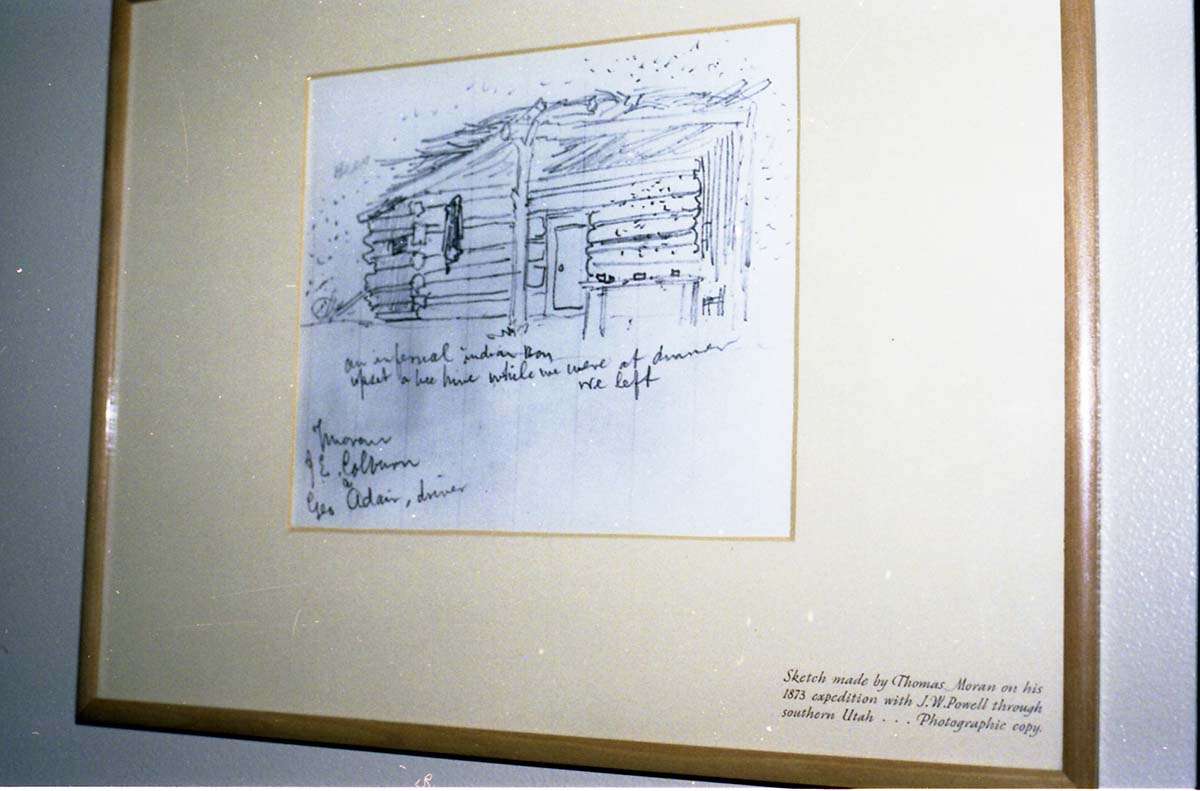 Bees
an infernal indian Boy
upset a bee hive while we were at dinner
we left
TMoran
J E. Colburn
&
Geo Adair, driver
Sketch made by Thomas Moran on his
1873 expedition with J.W.Powell through
southern Utah . . . Photographic copy.